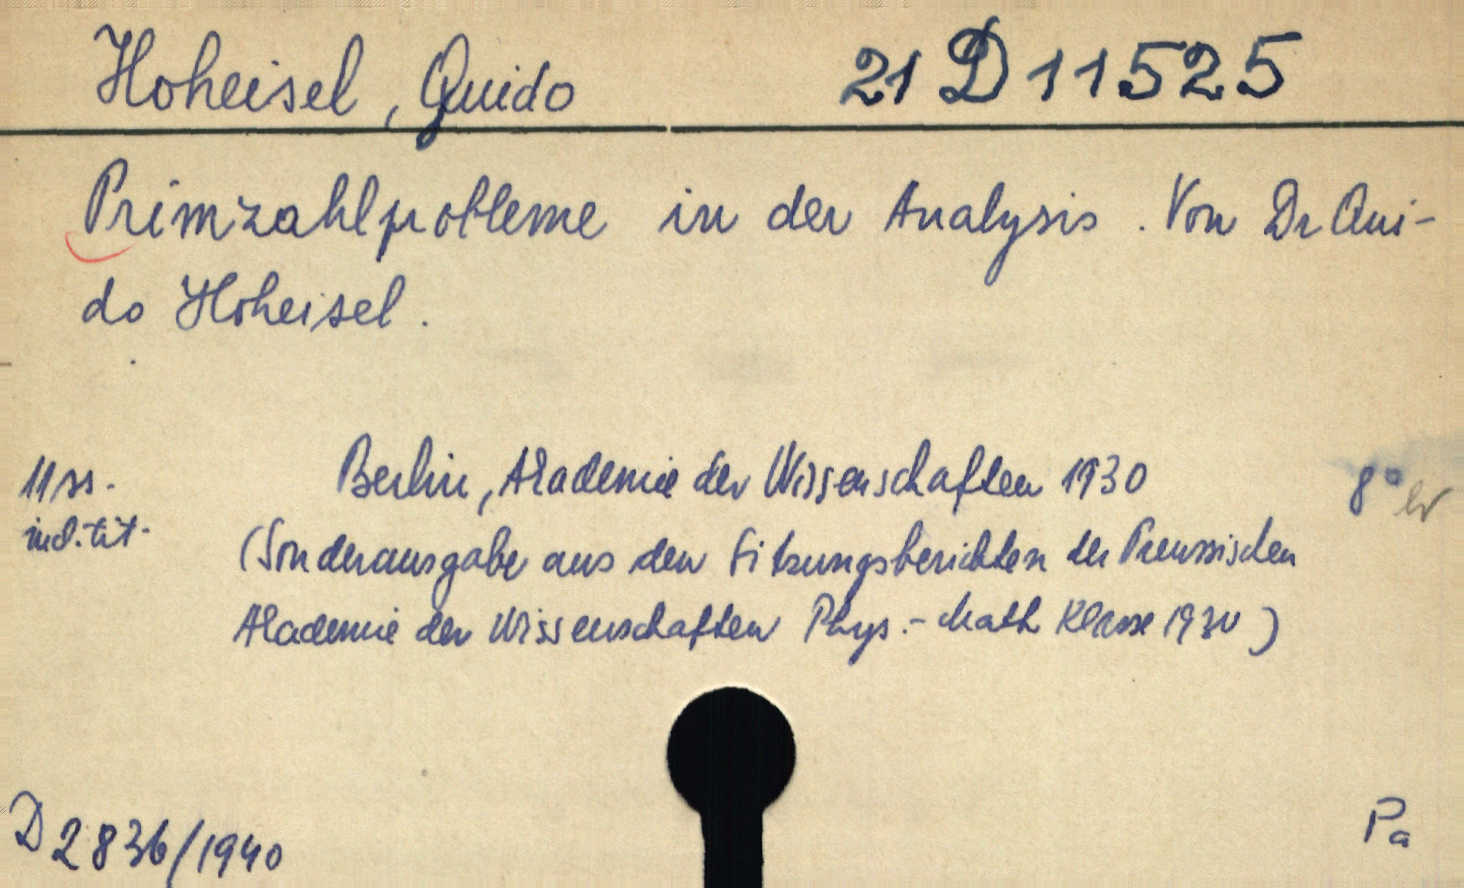 Hoheisel, Guido 21 D 11525
Primzahlprobleme in der Analysis. Von Dr Gui-
do Hoheisel.
11 ss. Berlin, Akademie der Wissenschaften 1930 8°
incl. tit. (Sonderausgabe aus den Sitzungsberichten der Preussischen
Akademie der Wissenschaften Phys.-Math Klasse 1930)
D 2836/1940 Pa